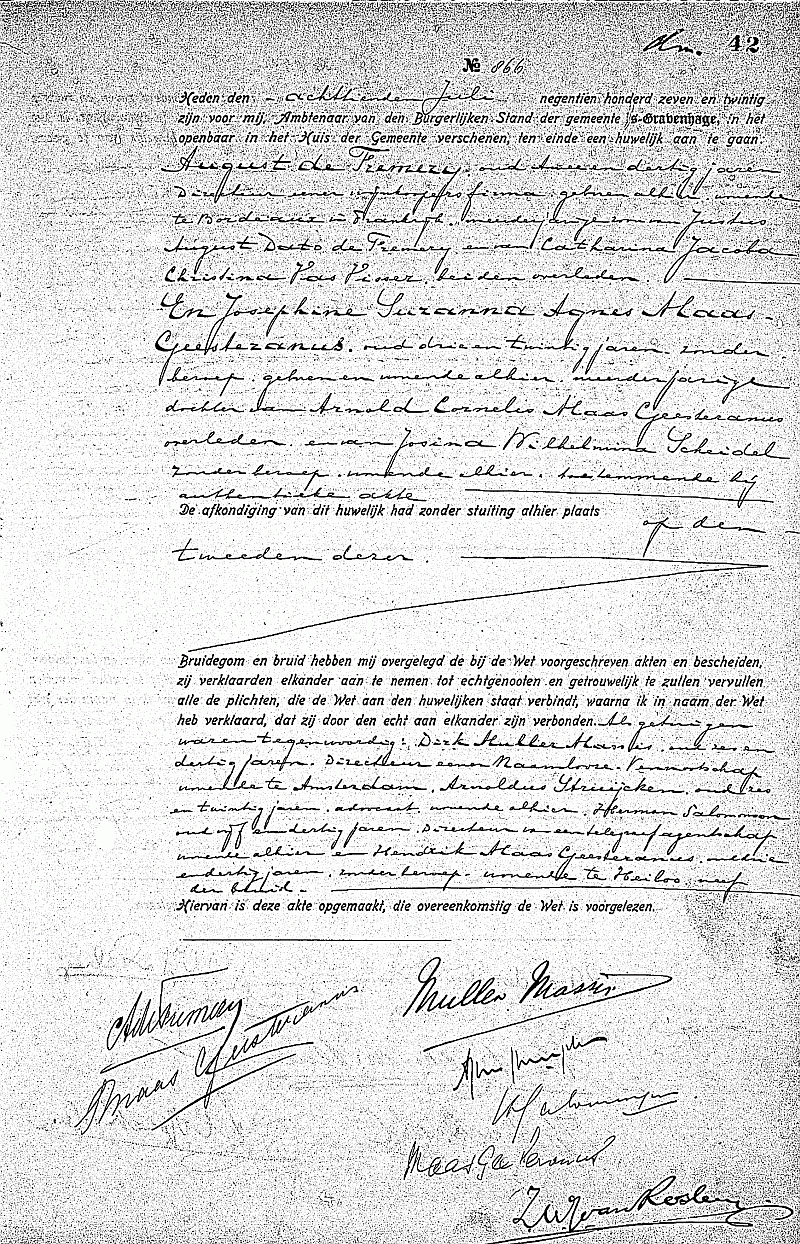 42
№ 866
Heden den achttienden Juli negentien honderd zeven en twintig
zijn voor mij, Ambtenaar van den Burgerlijken Stand der gemeente 's-Gravenhage, in het
openbaar in het Huis der Gemeente verschenen, ten einde een huwelijk aan te gaan:
August de Fremery, oud en dertig jaren
Directeur eener firma, geboren alhier, wonende
te Bordeaux in Frankrijk, meerderjarige zoon van Justus
August Dato de Fremery en van Catharina Jacoba
Christina Vas Visser, beiden overleden.
En Josephine Suzanna Agnes Maas-
Geesteranus, oud drie en twintig jaren, zonder
beroep, geboren en wonende alhier, meerderjarige
dochter van Arnold Cornelis Maas Geesteranus
overleden, en van Josina Wilhelmina Scheidel
zonder beroep, wonende alhier, toestemmende bij
authentieke akte
De afkondiging van dit huwelijk had zonder stuiting alhier plaats
op den
tweeden dezer.
Bruidegom en bruid hebben mij overgelegd de bij de Wet voorgeschreven akten en bescheiden,
zij verklaarden elkander aan te nemen tot echtgenooten en getrouwelijk te zullen vervullen
alle de plichten, die de Wet aan den huwelijken staat verbindt, waarna ik in naam der Wet
heb verklaard, dat zij door den echt aan elkander zijn verbonden. Als getuigen
waren tegenwoordig: Dirk Muller Massis, oud zes en
dertig jaren, Directeur eener Naamlooze Vennootschap
wonende te Amsterdam, Arnoldus Struijcken, oud zes
en twintig jaren, advocaat, wonende alhier, Herman Salomonson
oud vijf en dertig jaren, Directeur van een telegraafagentschap
wonende alhier en Hendrik Maas Geesteranus, oud drie
en dertig jaren, zonder beroep, wonende te Heiloo, neef
der bruid.
Hiervan is deze akte opgemaakt, die overeenkomstig de Wet is voorgelezen.
AdeFremery
Muller Massis
Maas Geesteranus
HSalomonson
Maas Geesteranus